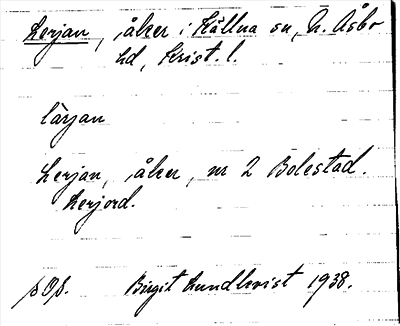 Lerjan, åker i Källna sn, N. Åsbo
hd, Krist. l.
lärjan
Lerjan, åker, nr 2 Bolestad.
Lerjord.
Birgit Lundkvist 1938.